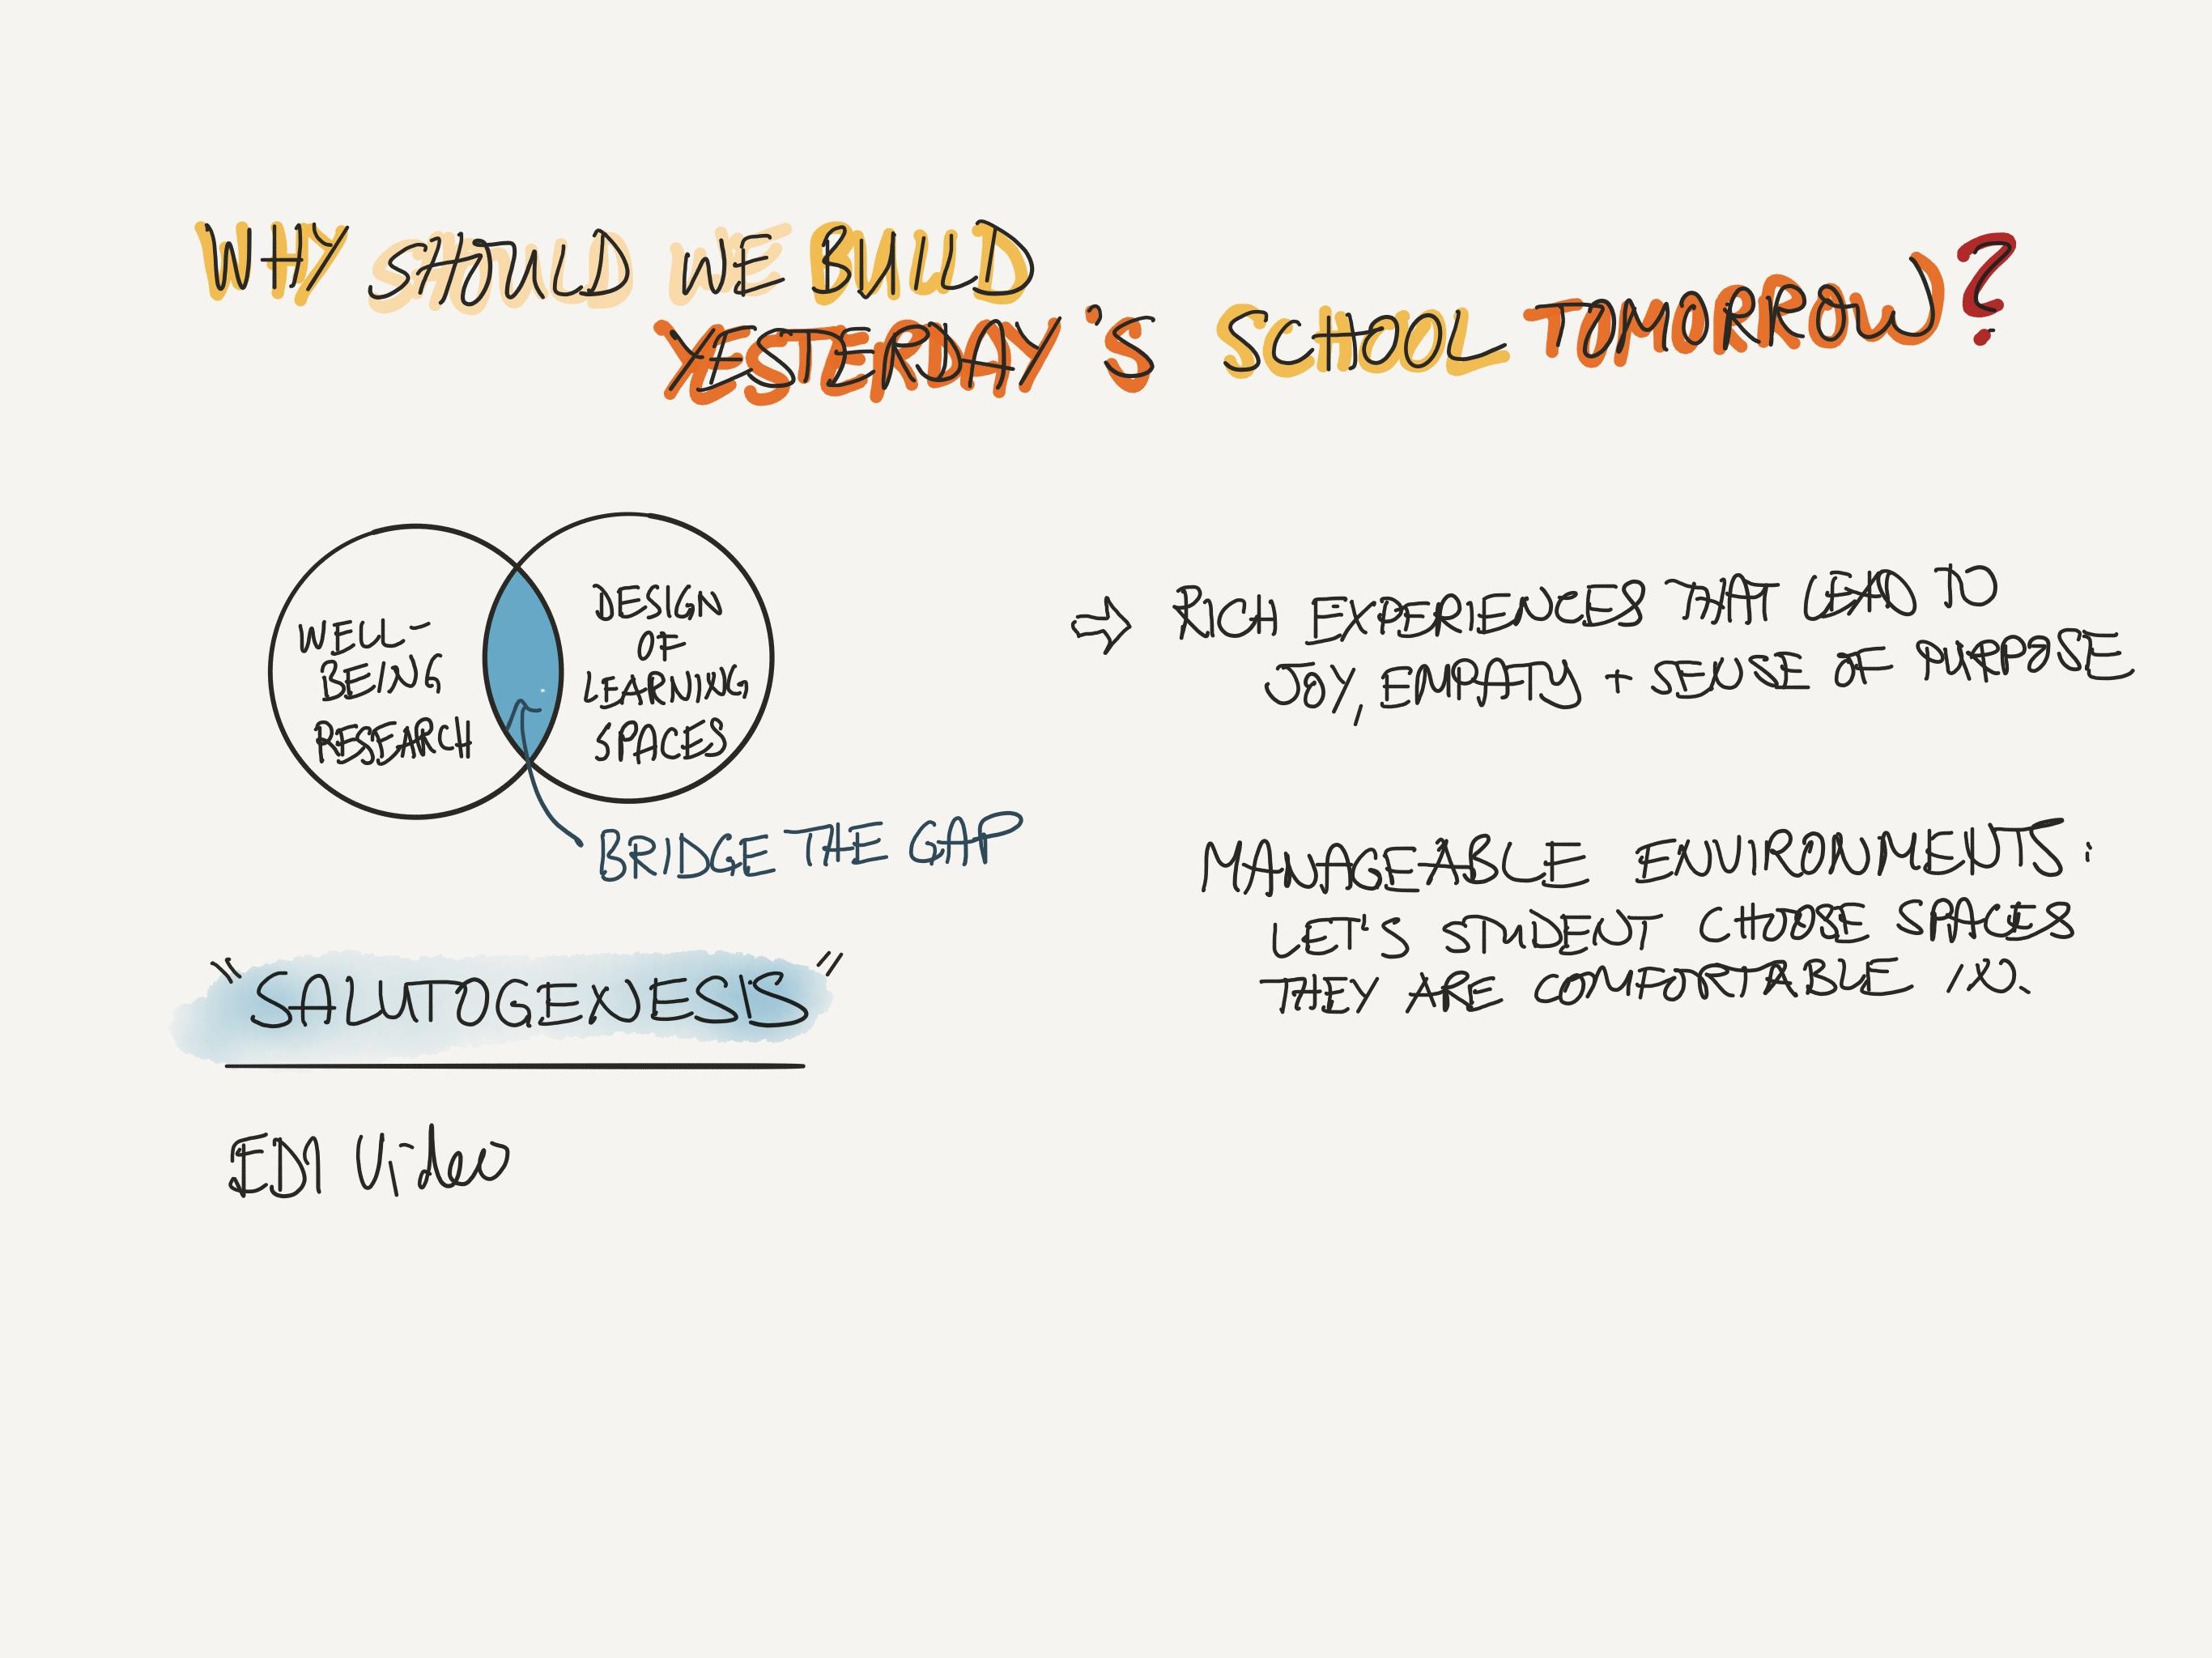 WHY SHOULD WE BUILD
YESTERDAY'S SCHOOL TOMORROW?
WELL-
BEING
RESEARCH
DESIGN
OF
LEARNING
SPACES
BRIDGE THE GAP
"SALUTOGENESIS"
Video
⇨ RICH EXPERIENCES THAT LEAD TO
JOY, EMPATY + SENSE OF PURPOSE
MANAGEABLE ENVIRONMENTS:
LET'S STUDENT CHOOSE SPACES
THEY ARE COMFORTABLE IN.